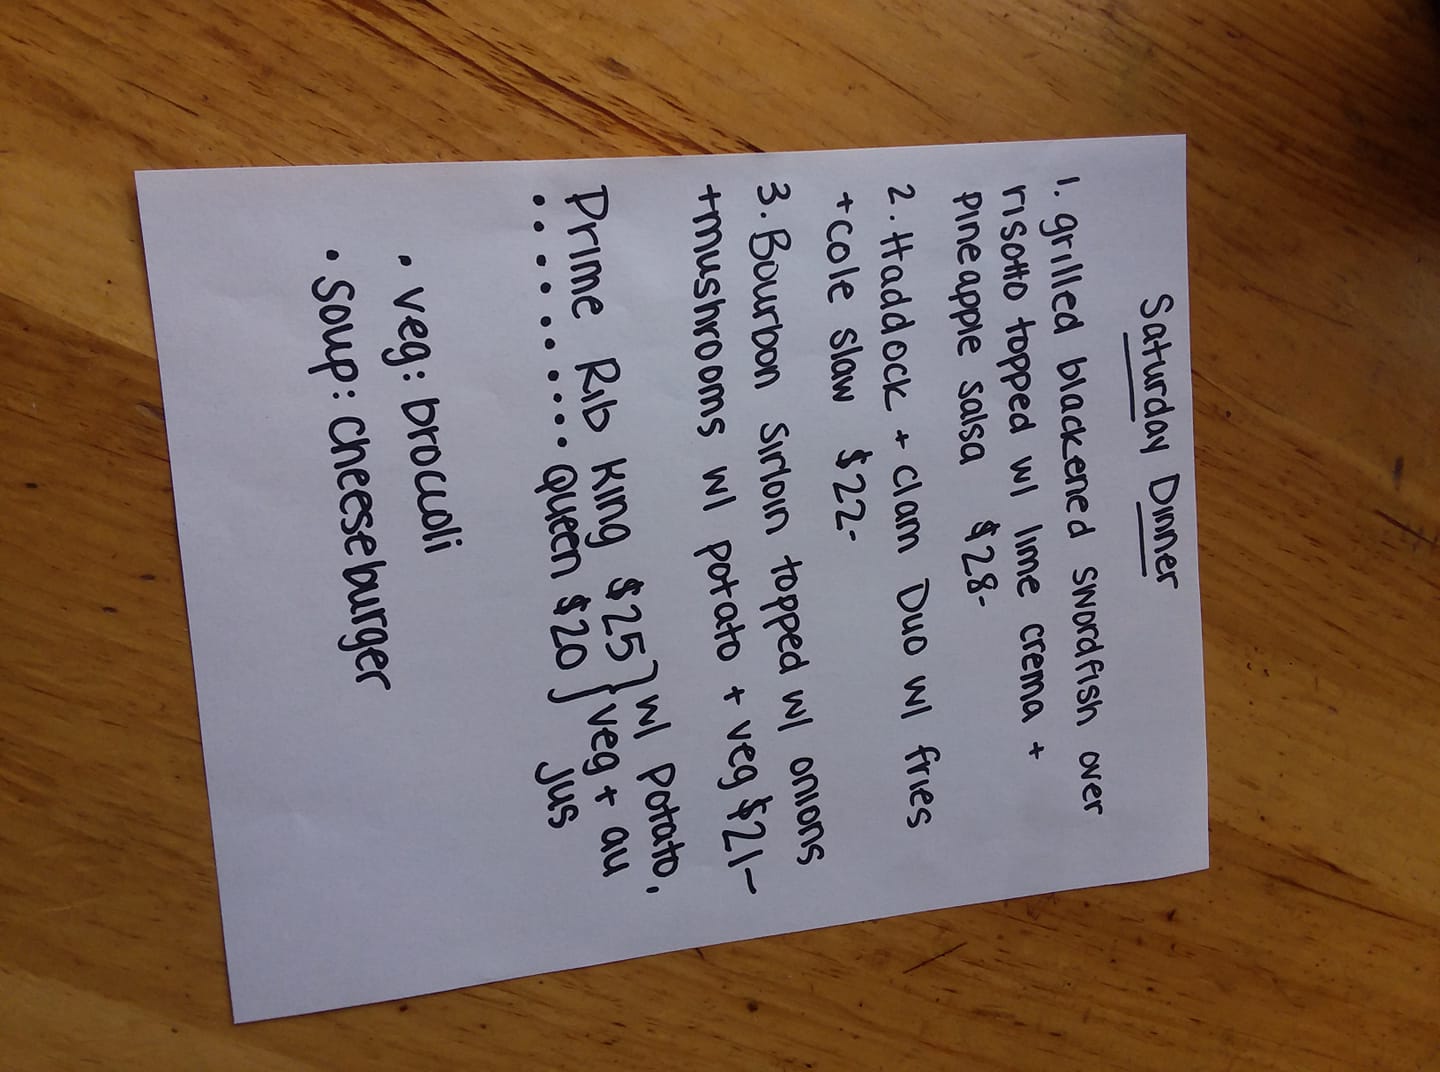 Saturday Dinner
1. grilled blackened swordfish over
risotto topped w/ lime crema +
pineapple salsa $28-
2. Haddock + clam Duo w/ fries
+ cole slaw $22-
3. Bourbon Sirloin topped w/ onions
+mushrooms w/ potato + veg $21-
Prime Rib King $25 } w/ potato,
.......... Queen $20 } veg + au
jus
• veg: broccoli
• Soup: cheeseburger